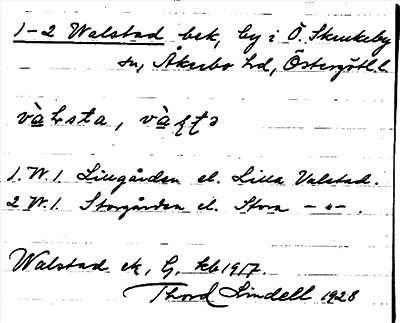 1-2 Walstad bek, by i Ö. Skrukeby
sn, Åkerbo hd, Östergötl. l.
vàLsta,
1. W. 1. Lillgården el. Lilla Valstad.
2. W. 1. Storgården el. Stora -"-.
Walstad ek, G, kb 1917.
Thord Lindell 1928